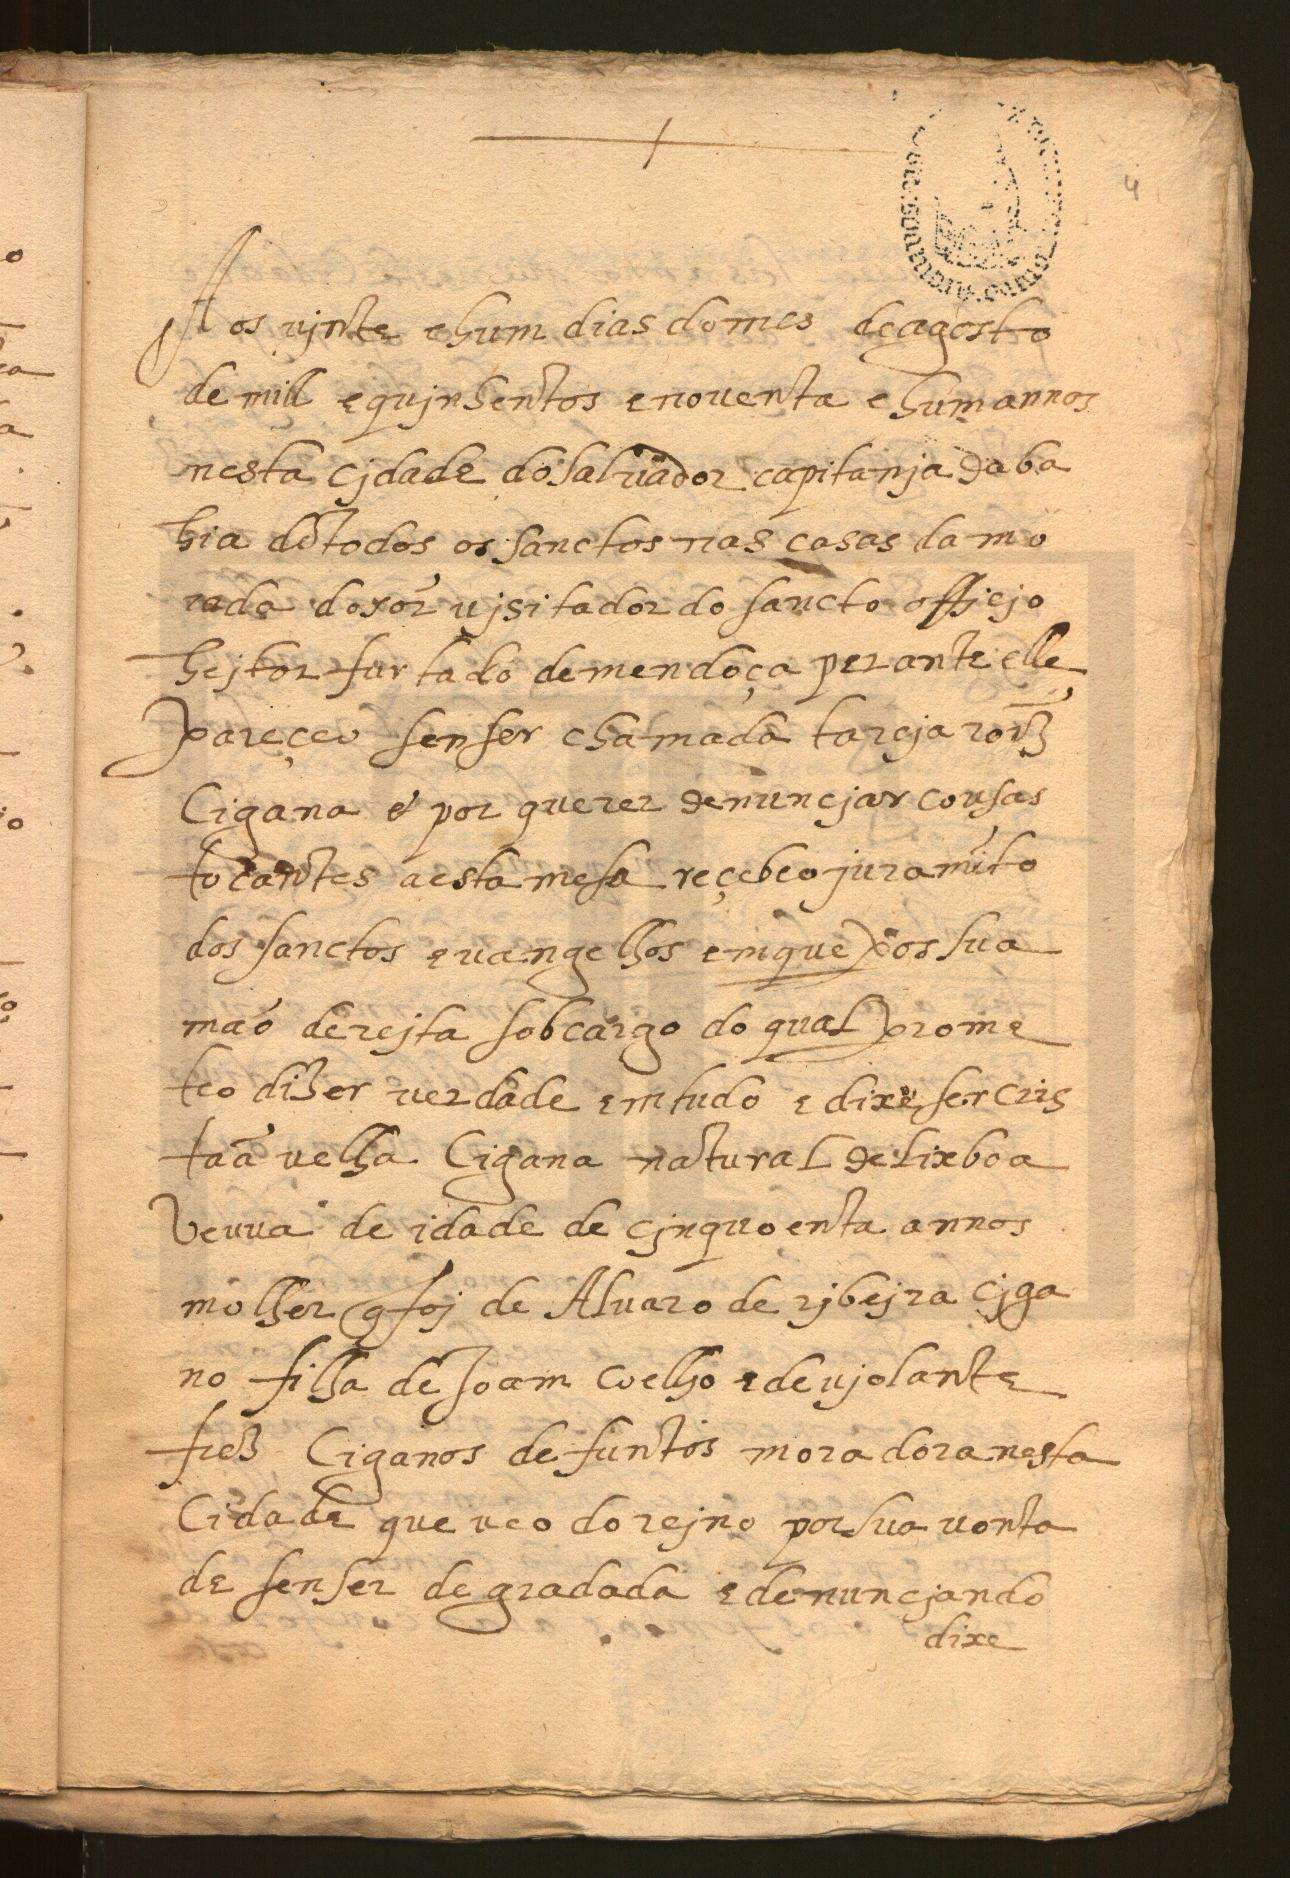 4
Aos vjnte e hum dias do mes de agosto
de mill e qujnhentos e noventa e hum annos
nesta cjdade do salvador capitanja da ba
hia de todos os sanctos nas casas da mo
rada do sor vjsitador do sancto offjcjo
hejtor furtado de mendoça perante elle
pareçeo sen ser chamada tareja roiz
Cigana e por querer denuncjar cousas
tocantes a esta mesa reçebeo juramto
dos sanctos evangelhos em que pos sua
mão derejta sob cargo do qual prome
teo dizer verdade em tudo e dixe ser cris
taã velha Cigana natural de lixboa
veuva de idade de cjnquoenta annos
molher q foj de Alvaro de rjbejra cjga
no filha de Joam Coelho e de vjolante
friz Ciganos defuntos moradora nesta
Cidade que veo do rejno por sua vonta
de sen ser degradada e denuncjando
dixe